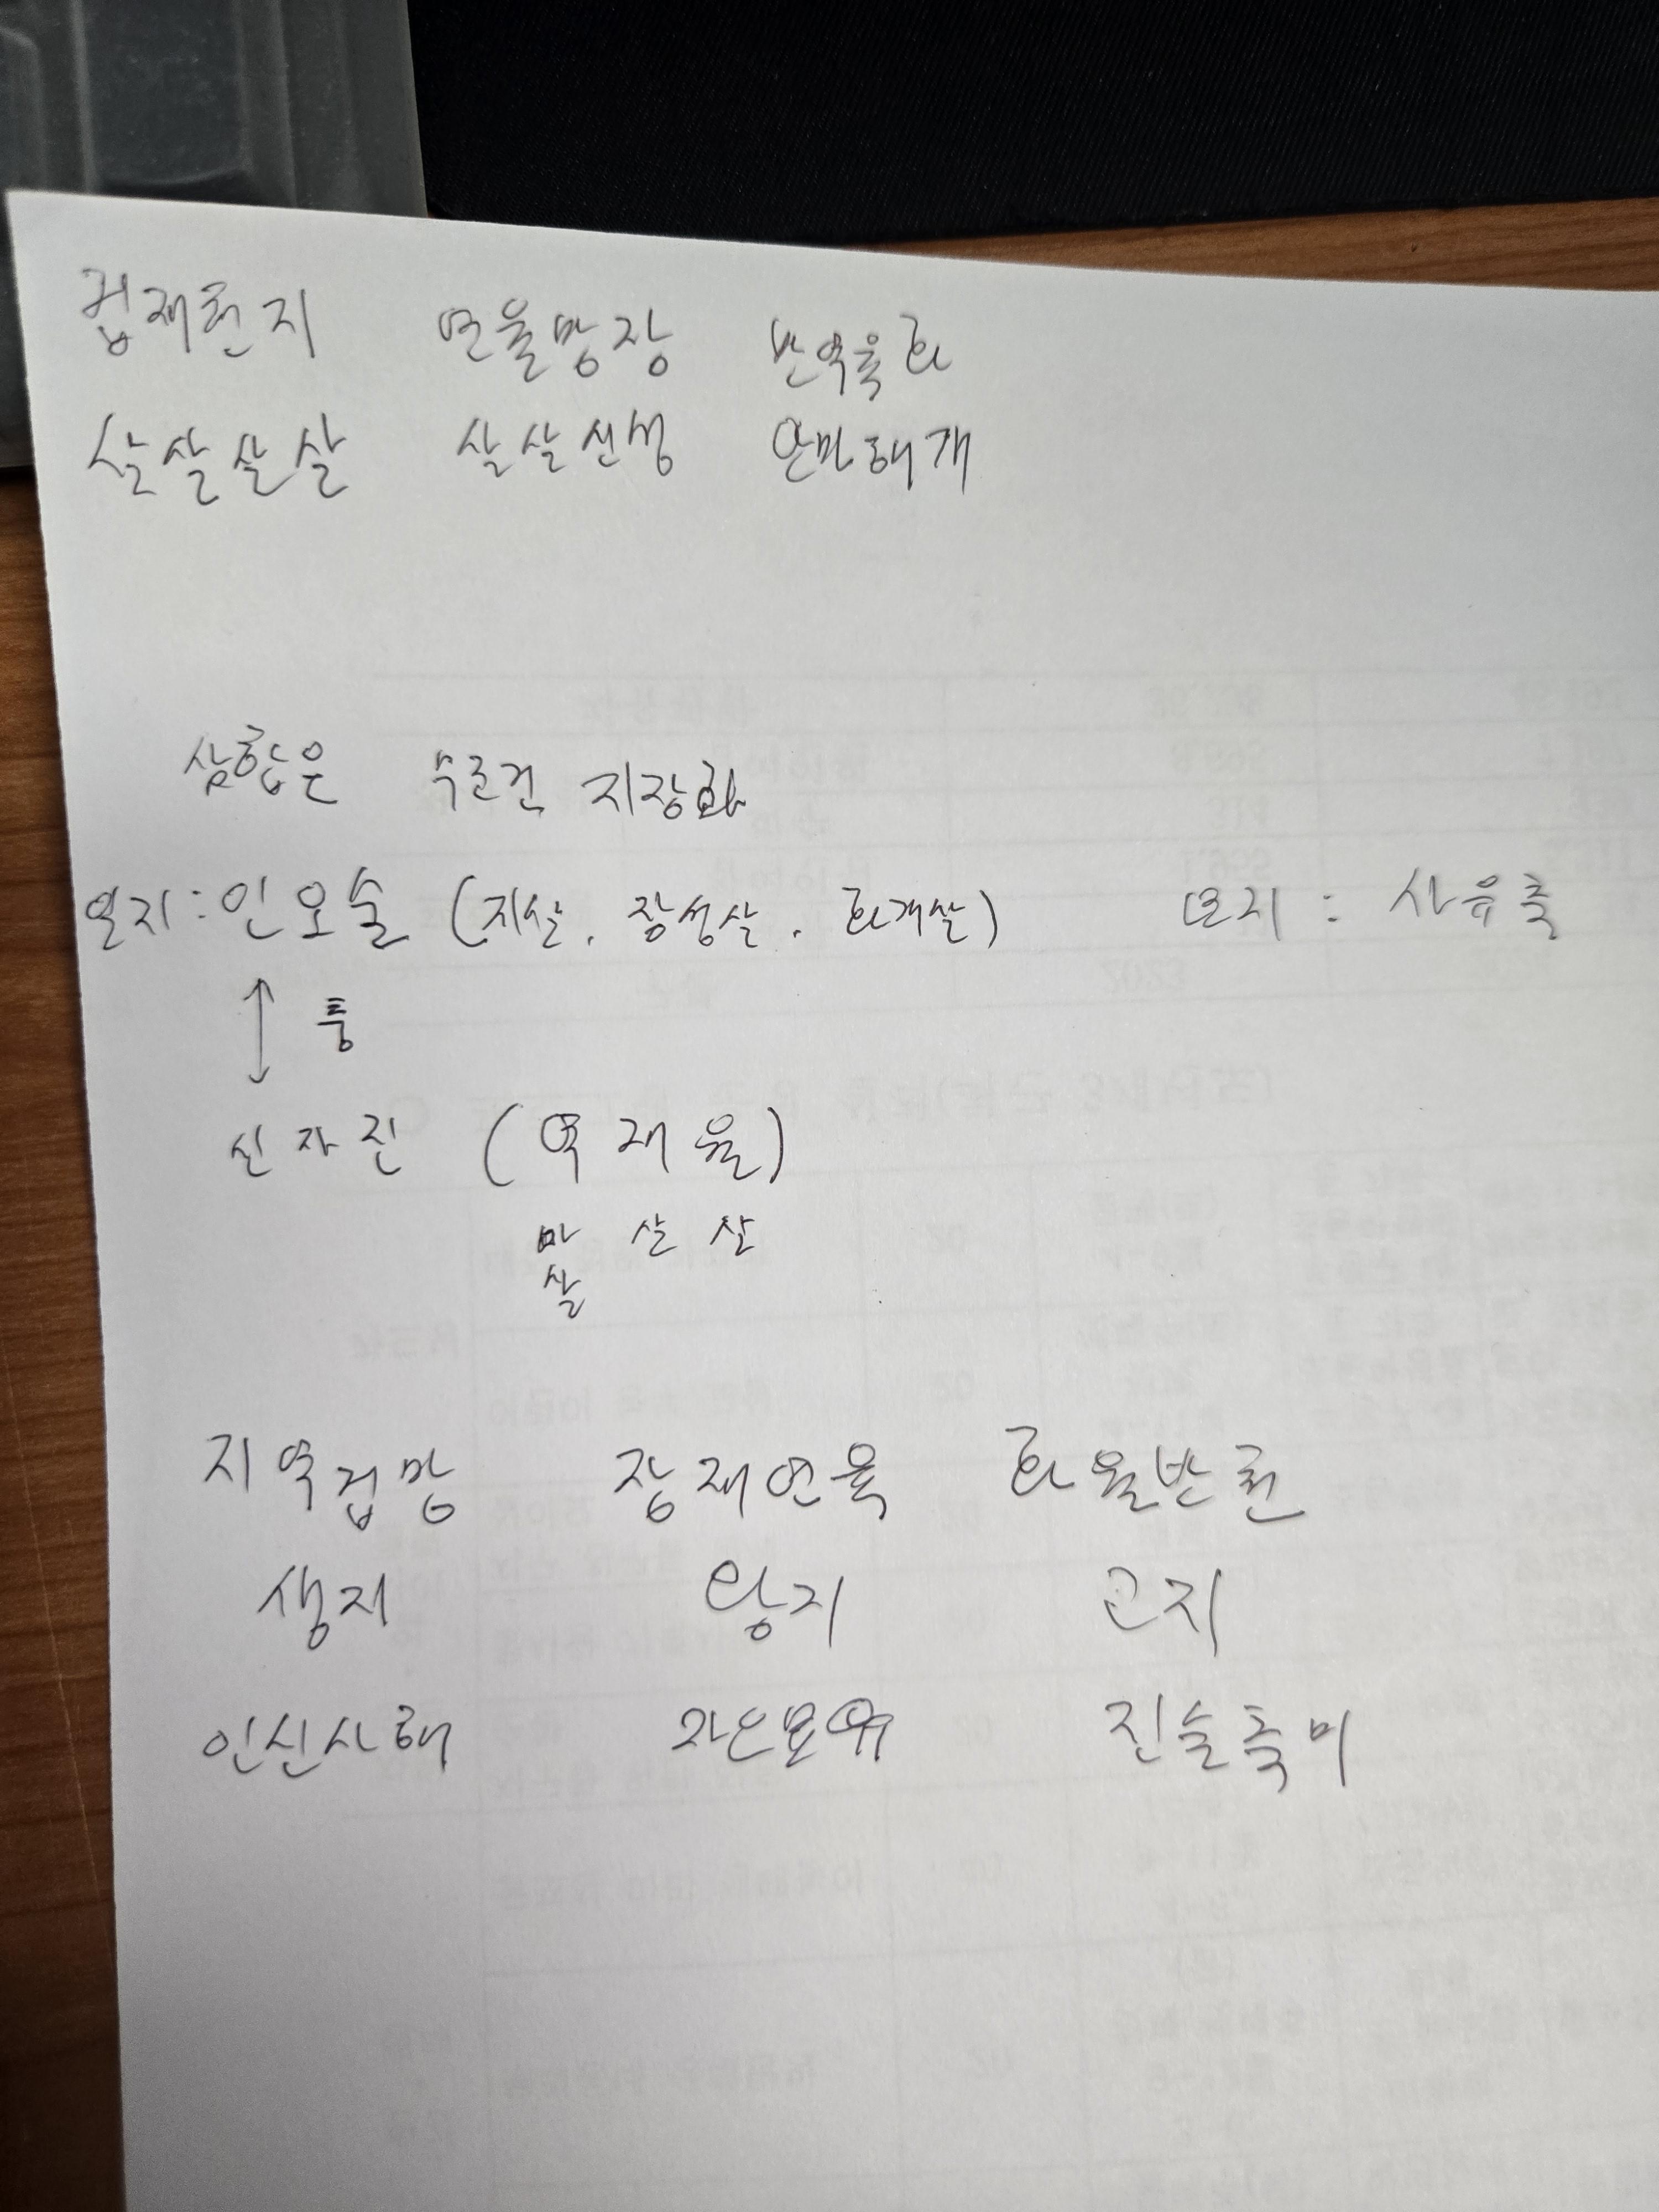 겁재천지 연월망장 반역육화
살살살살 살살신성 안마해개
삼합은 무조건 지장화
일지 : 인오술 (지살, 장성살, 화개살) 묘지 : 사유축
↕ 충
신자진 (역재월)
마살살
살
지역겁망 장재연육 화월반천
생지 왕지 고지
인신사해 자오묘유 진술축미